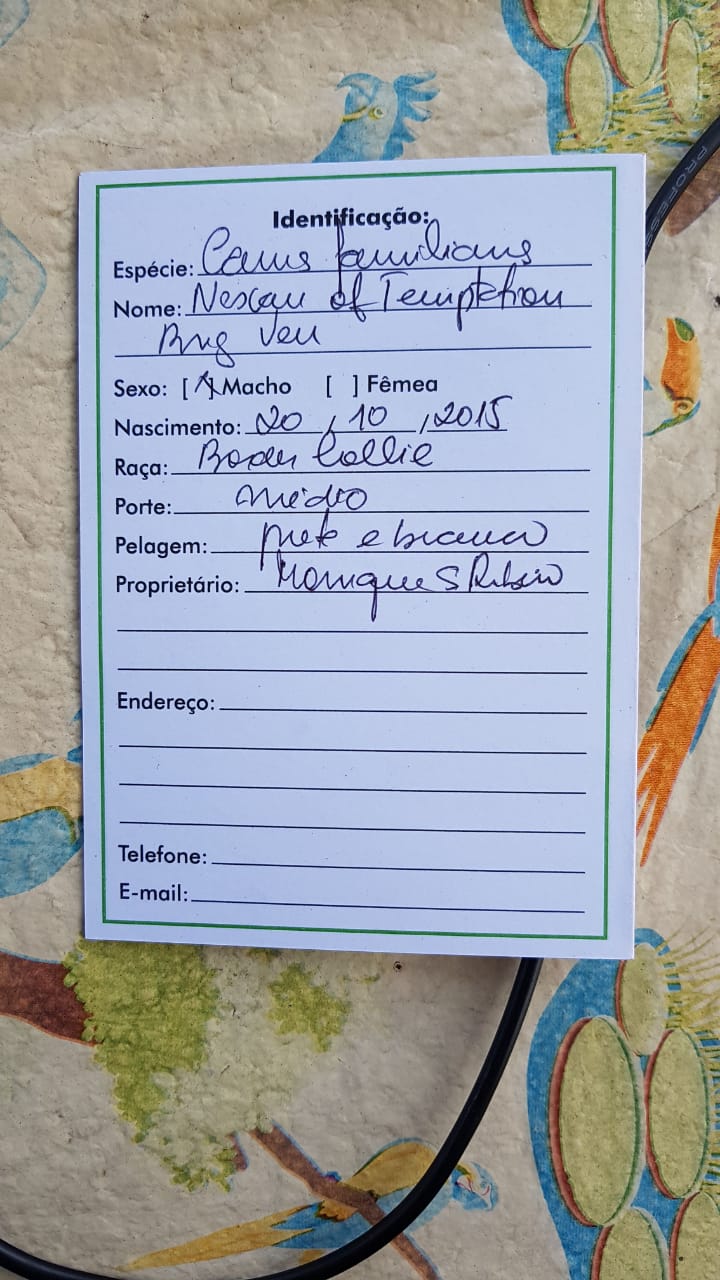 Identificação:
Espécie: Canis familiaris
Nome: Nescau of Temptation
Sexo: [X] Macho [ ] Fêmea
Nascimento: 20 / 10 / 2015
Raça: Border Collie
Porte: médio
Pelagem: preto e branco
Proprietário: Monique S Ribeiro
Endereço:
Telefone:
E-mail:
PROFESS